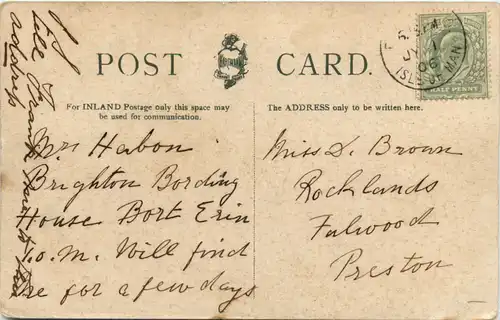 POST CARD.
For INLAND Postage only this space may
be used for communication.
The ADDRESS only to be written here.
JY 1
06
ISLE OF MAN
HALF PENNY
Mrs Habon
Brighton Bording
House Bort Erin
I.o.M. Will find
me for a few days
Miss D. Brown
Rocklands
Fulwood
Preston
tell Frank
address